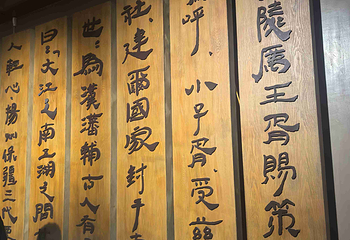 陵厲王胥賜策
呼，小子胥，受茲
社，建爾國家，封于
世，為漢藩輔古人有
曰：「大江之南五湖之間
人輕心楊州保疆三代